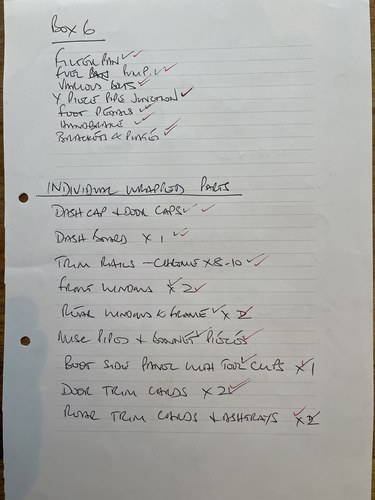 Box 6
FILTER PAN
FUEL PUMP
VARIOUS BOLTS
Y PIECE PIPE JUNCTION
FOOT PEDALS
HANDBRAKE
BRACKETS & PLATES
INDIVIDUAL WRAPPED PARTS
DASH CAP & DOOR CAPS
DASH BOARD X 1
TRIM RAILS - CHROME X 8-10
FRONT WINDOWS X 2
REAR WINDOWS & FRAME X 2
MISC PIPES & BONNET PIECES
BOOT SIDE PANEL WITH TOOL CLIPS X 1
DOOR TRIM CARDS X 2
REAR TRIM CARDS & ASHTRAYS X 2